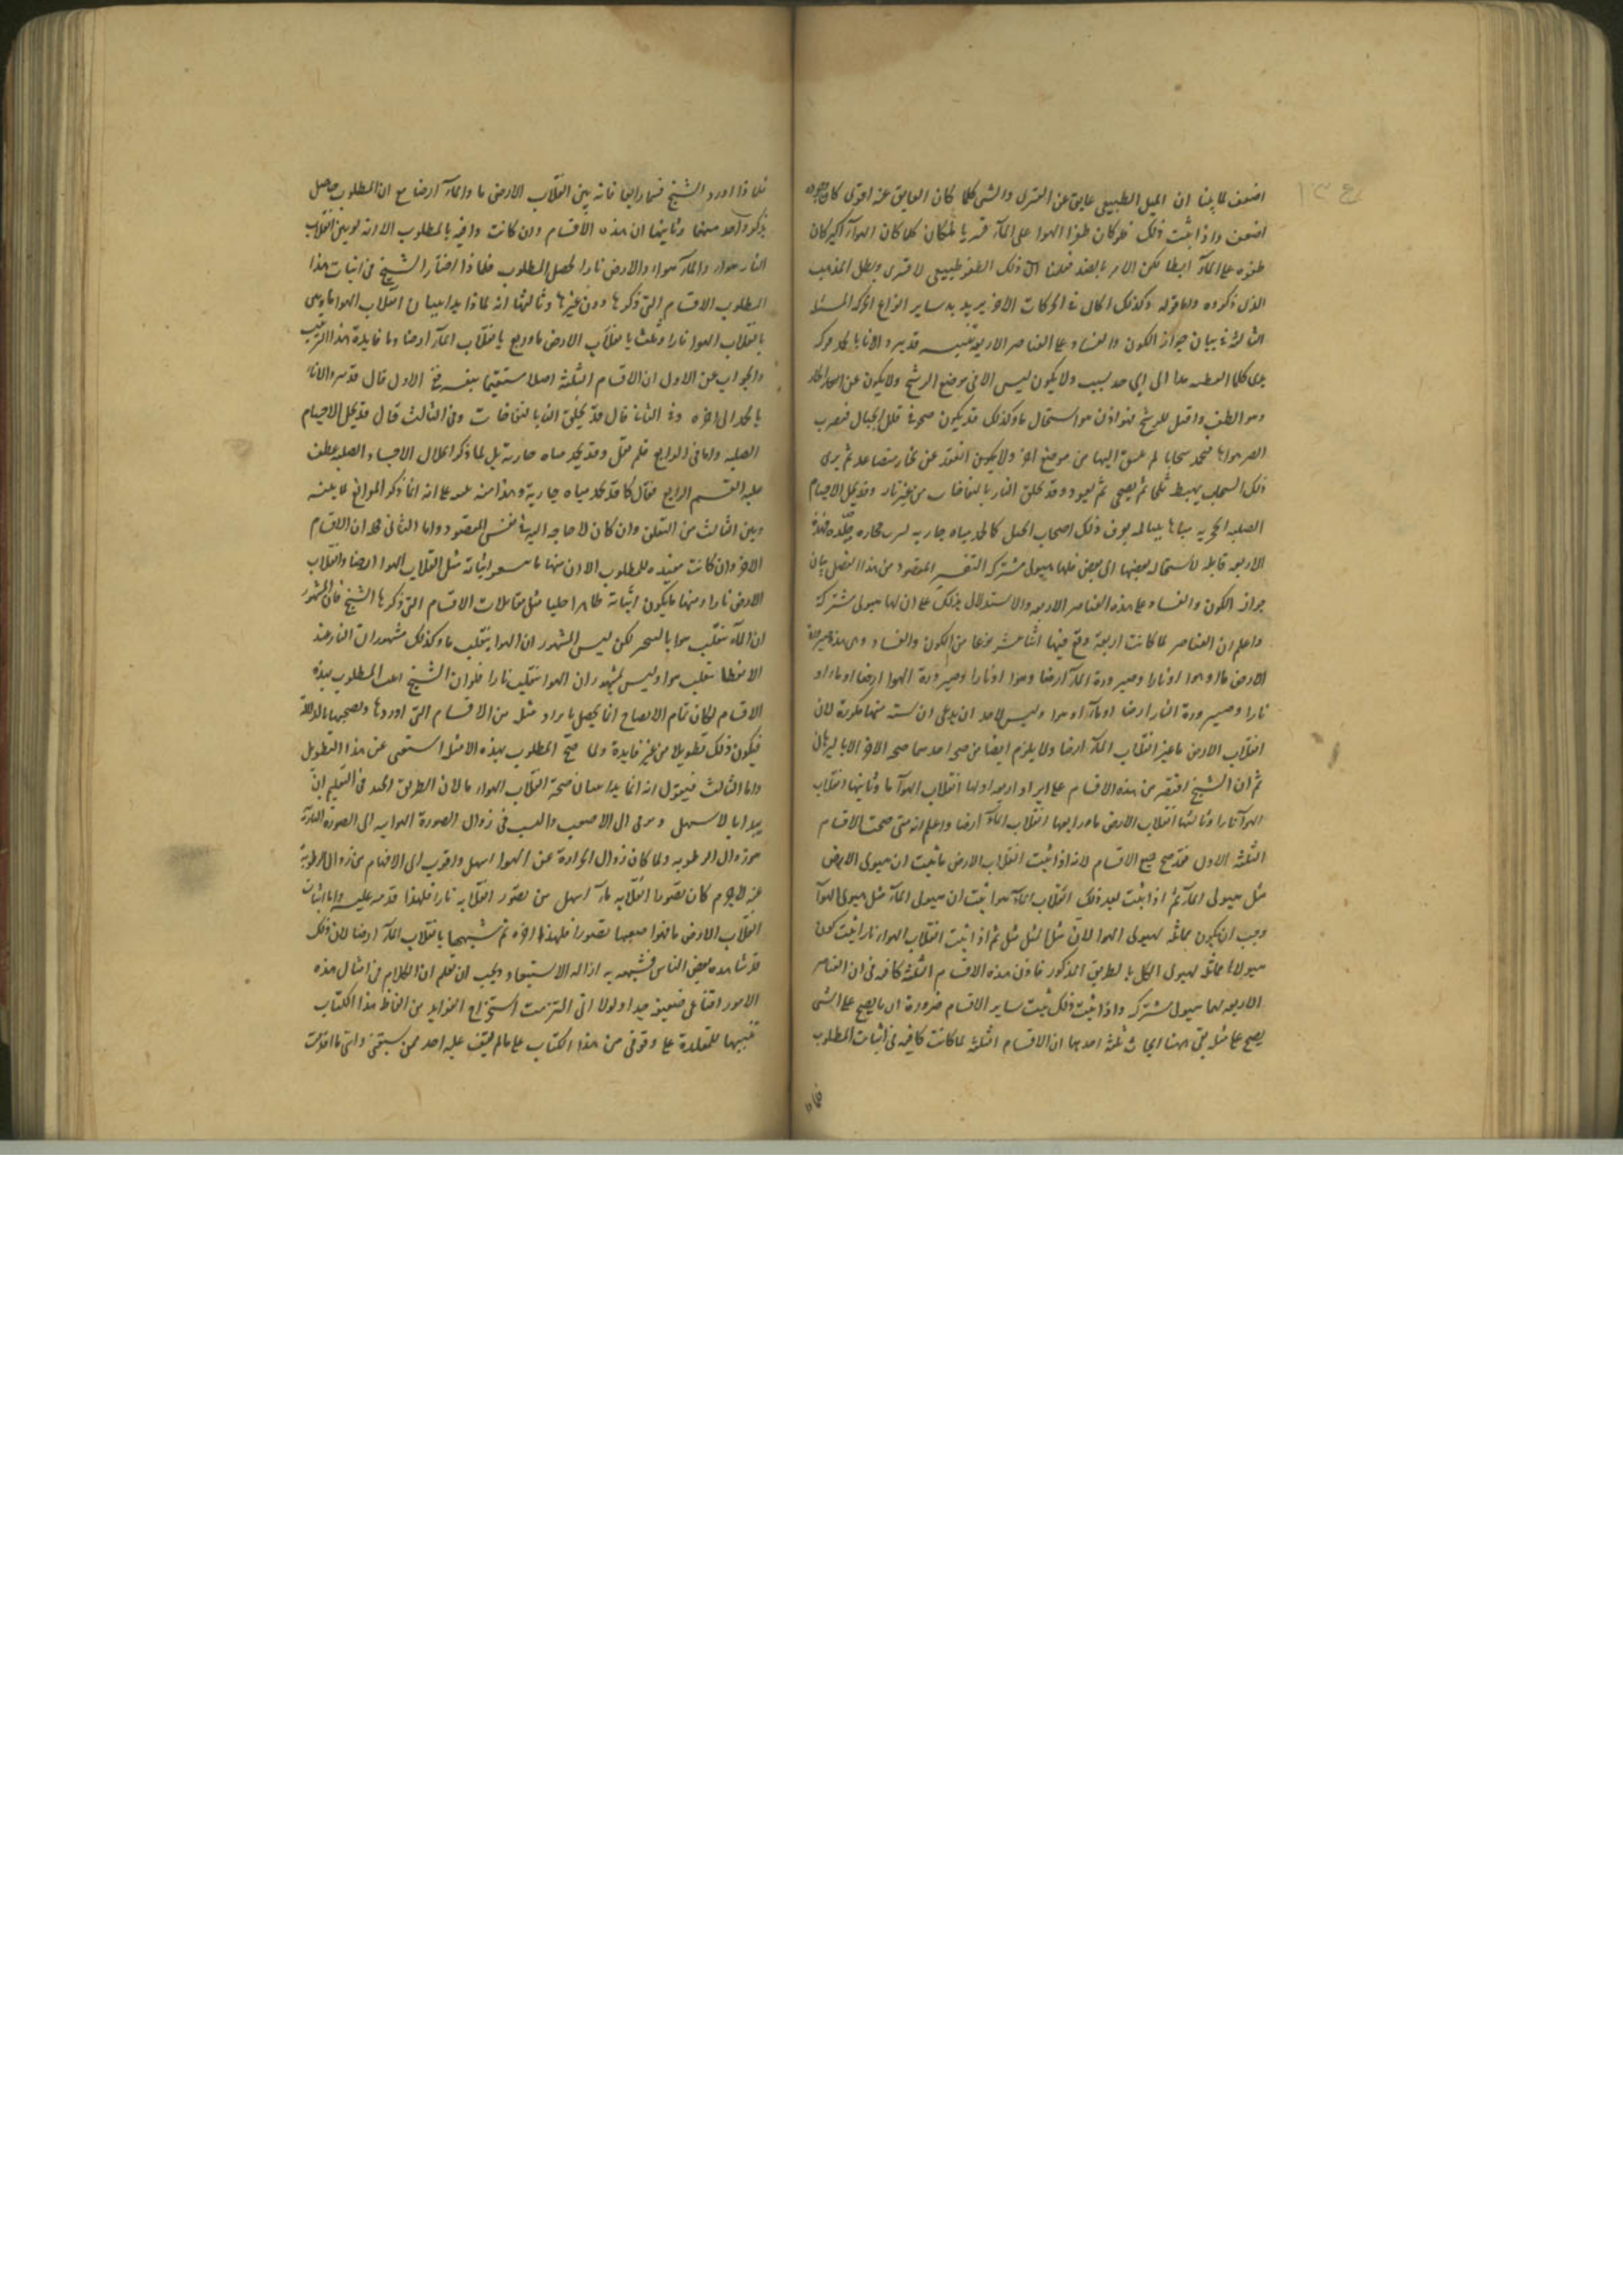 اضعف لما بينا ان الميل الطبيعى عايق عن القسرى والشى كلما كان العايق عنه اقوى كان وجوده
اضعف واذا ثبت ذلك فلو كان طفو الهوا على المآء قسريا لكان كلما كان الهوآء اكبر كان
طفوه على المآء ابطا لكن الامر بالضد فعلمنا ان ذلك الطفو طبيعى لا قسرى وبطل المذهب
الذى ذكروه واما قوله وكذلك الحال فى الحركات الاخر يريد به ساير انواع الحركه المسئلة
الثالثة فى بيان جواز الكون والفساد على العناصر الاربعة تنبيه قد يبرد الانا بالجمد فيركبه
ندى كلما لقطته مد الى اى حد شيت ولا يكون ليس الا فى موضع الرشح ولا يكون عن الماء الحار
وهو الطف واقبل للرشح فهو اذن هوا استحال ماء وكذلك قد يكون صحو فى قلل الجبال فيضرب
الصر هواها فيجمد سحابا لم ينسق اليها من موضع اخر ولا يكون انعقد عن بخار متصاعد ثم يرى
ذلك السحاب يهبط ثلجا ثم يصحى ثم يعود وقد تخلق النار بالنفاخات من غير نار وقد تحل الاجسام
الصلبه الحجريه مياها سياله يعرف ذلك اصحاب الحيل كما تجمد مياه جاريه تشرب حجاره صلده فهذه
الاربعه قابله لاستحاله بعضها الى بعض فلها هيولى مشتركه التفسير المقصود من هذا الفصل بيان
جواز الكون والفساد على هذه العناصر الاربعه والاستدلال بذلك على ان لها هيولى مشتركة
واعلم ان العناصر لما كانت اربعة وقع فيها اثنا عشر نوعا من الكون والفساد وهى هذه صيرورة
الارض مآء او هوا او نارا وصيرورة المآء ارضا وهوا او نارا وصيرورة الهوا ارضا او ماء او
نارا وصيرورة النار ارضا او مآء او هوا وليس لاحد ان يدعى ان سته منها مكررة لان
انقلاب الارض ماء غير انقلاب المآء ارضا ولا يلزم ايضا من صحة احدهما صحه الاخر الا بالبرهان
ثم ان الشيخ اقتصر من هذه الاقسام على ايراد اربعه اولها انقلاب الهوآء ماء وثانيها انقلاب
الهوآء نارا وثالثها انقلاب الارض ماء ورابعها انقلاب المآء ارضا واعلم انه متى صحت الاقسام
الثلثة الاول فقد صح جميع الاقسام لانه اذا ثبت انقلاب الارض ماء ثبت ان هيولى الارض
مثل هيولى المآء ثم اذا ثبت بعد ذلك انقلاب المآء هوا ثبت ان هيولى المآء مثل هيولى الهوآء
وجب ان يكون مماثله لهيولى الهوا لان مثل المثل مثل ثم اذا ثبت انقلاب الهواء نارا ثبت كون
هيولاها مماثله لهيولى الكل بالطريق المذكور فاذن هذه الاقسام الثلثة كافيه فى ان العناصر
الاربعه لها هيولى مشتركه واذا ثبت ذلك ثبت ساير الاقسام ضرورة ان ما يصح على الشى
يصح على مثله بقى ههنا ابحاث ثلثة احدها ان الاقسام الثلثة لما كانت كافيه فى اثبات المطلوب
فلما
فلماذا اورد الشيخ قسما رابعا فانه بين انقلاب الارض ماء والمآء ارضا مع ان المطلوب حاصل
بذكر واحد منهما وثانيها ان هذه الاقسام وان كانت وافيه بالمطلوب الا انه لو بين انقلاب
النار هواء والمآء هواء والارض نارا لحصل المطلوب فلماذا اختار الشيخ فى اثبات هذا
المطلوب الاقسام التى ذكرها دون غيرها وثالثها انه لماذا بدا ببيان انقلاب الهوا ماء وثنى
بانقلاب الهوا نارا وثلث بانقلاب الارض ماء وربع بانقلاب المآء ارضا وما فايدة هذا الترتيب
والجواب عن الاول ان الاقسام الثلثة اصلا مستقيما بنفسه ففى الاول قال قد يبرد الاناء
بالجمد الى اخره وفى الثانى قال قد تخلق النار بالنفاخات وفى الثالث قال قد تحل الاجسام
الصلبه واما فى الرابع فلم يقل وقد تجمد مياه جارية بل لما ذكر انحلال الاجساد الصلبه عطف
عليه القسم الرابع فقال كما قد تجمد مياه جارية وهذا منه تنبيه على انه انما ذكر الموانع لما بينه
وبين الثالث من التعلق وان كان لا حاجه اليه فى نفس المقصود واما الثانى فهو ان الاقسام
الاخر وان كانت مفيده للمطلوب الا ان منها ما يتعذر اثباته مثل انقلاب الهوا ارضا وانقلاب
الارض نارا ومنها ما يكون اثباته ظاهرا جليا مثل مقابلات الاقسام التى ذكرها الشيخ فان المشهور
ان المآء ينقلب هوا بالتبخر لكن ليس المشهور ان الهوا ينقلب ماء وكذلك مشهور ان النار عند
الانطفا تنقلب هوا وليس بمشهور ان الهوا ينقلب نارا فلو ان الشيخ اثبت المطلوب بهذه
الاقسام لكان تمام الايضاح انما يحصل بايراد مثله من الاقسام التى اوردها وتصحيحها بالدلالة
فيكون ذلك تطويلا من غير فايدة ولما صح المطلوب بهذه الامثله استغنى عن هذا التطويل
واما الثالث فيقول انه انما بدا ببيان صحة انقلاب الهواء ماء لان الطريق الجيد فى التعليم ان
يبدا بالاسهل ويرقى الى الاصعب والسبب فى زوال الصورة الهوايه الى الصورة الناريه
هو زوال الرطوبه ولما كان زوال الحرارة عن الهوا اسهل واقرب الى الافهام من زوال الرطوبة
عنه لا جرم كان تصور انقلابه مآء اسهل من تصور انقلابه نارا فلهذا قدمه عليه واما اثبات
انقلاب الارض ماء فهو اصعبها تصورا فلهذا اخره ثم شبهها بانقلاب المآء ارضا لان ذلك
قد شاهده بعض الناس فشبهه به ازاله الاستبعاد ويجب ان تعلم ان الكلام فى امثال هذه
الامور اقناعى ضعيف جدا ولولا انى التزمت استخراج الفوايد من الفاظ هذا الكتاب
تنبيها للمقلدة على وقوفى من هذا الكتاب على ما لم يقف عليه احد ممن سبقنى وانى ما اقدمت